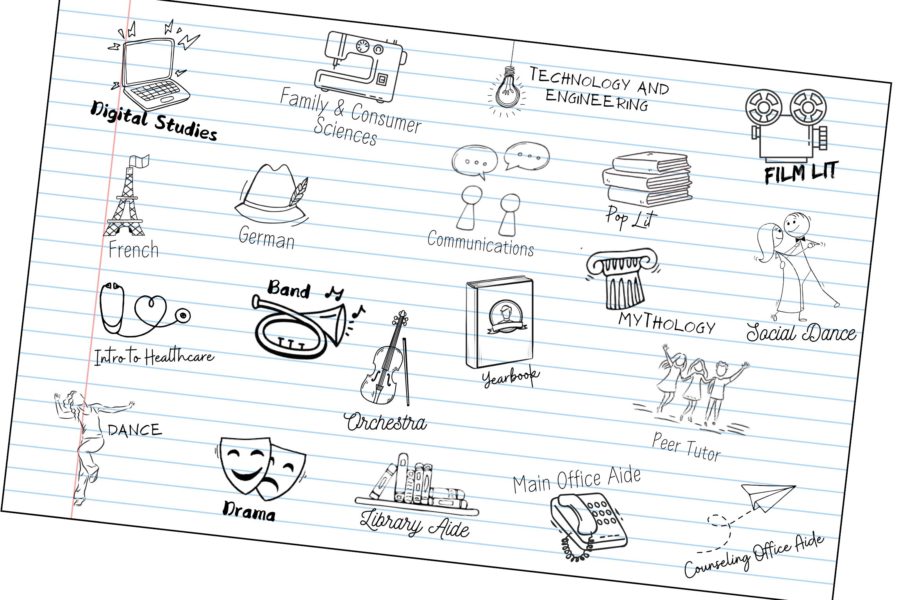 Digital Studies
Family & Consumer
Sciences
TECHNOLOGY AND
ENGINEERING
FILM LIT
French
German
Communications
Pop Lit
Social Dance
Intro to Healthcare
Band
Orchestra
Yearbook
MYTHOLOGY
Peer Tutor
DANCE
Drama
Library Aide
Main Office Aide
Counseling Office Aide